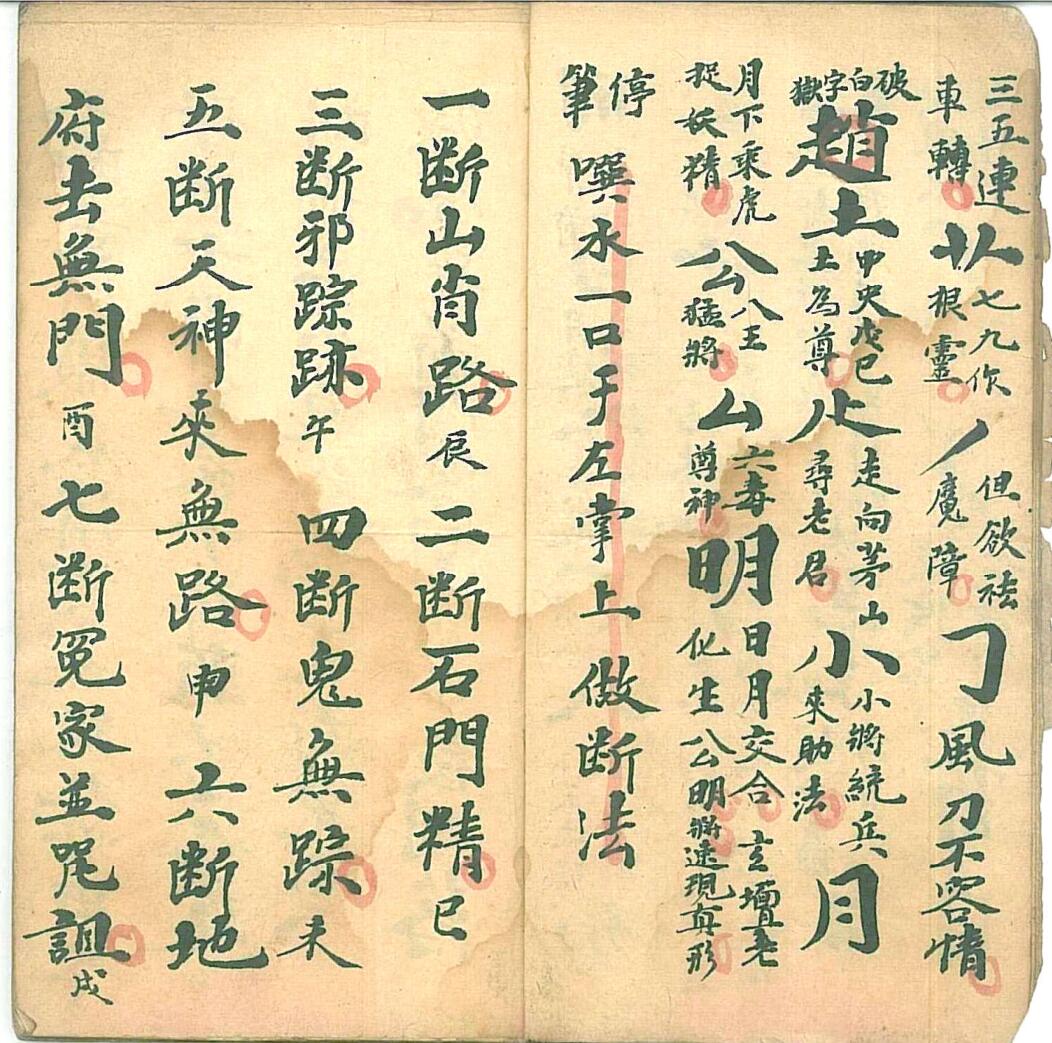 三五連車轉 七九作根靈 丿 但欲祛魔障 𠃌 風刀不容情
破白字獄 趙 土 中央戊己土為尊 龰 走向茅山尋老君 小 小將統兵來助法 月
月下乘虎捉妖精 公 八 八王猛將 厶 六毒尊神 明 日月交合化生公明 玄壇老將速現真形
停筆 噀水一口于左掌上 做断法
一断山肖路 辰 二断石門精 巳
三断邪踪跡 午 四断鬼無踪 未
五断天神來無路 申 六断地
府去無門 酉 七断冤家並咒詛 戌